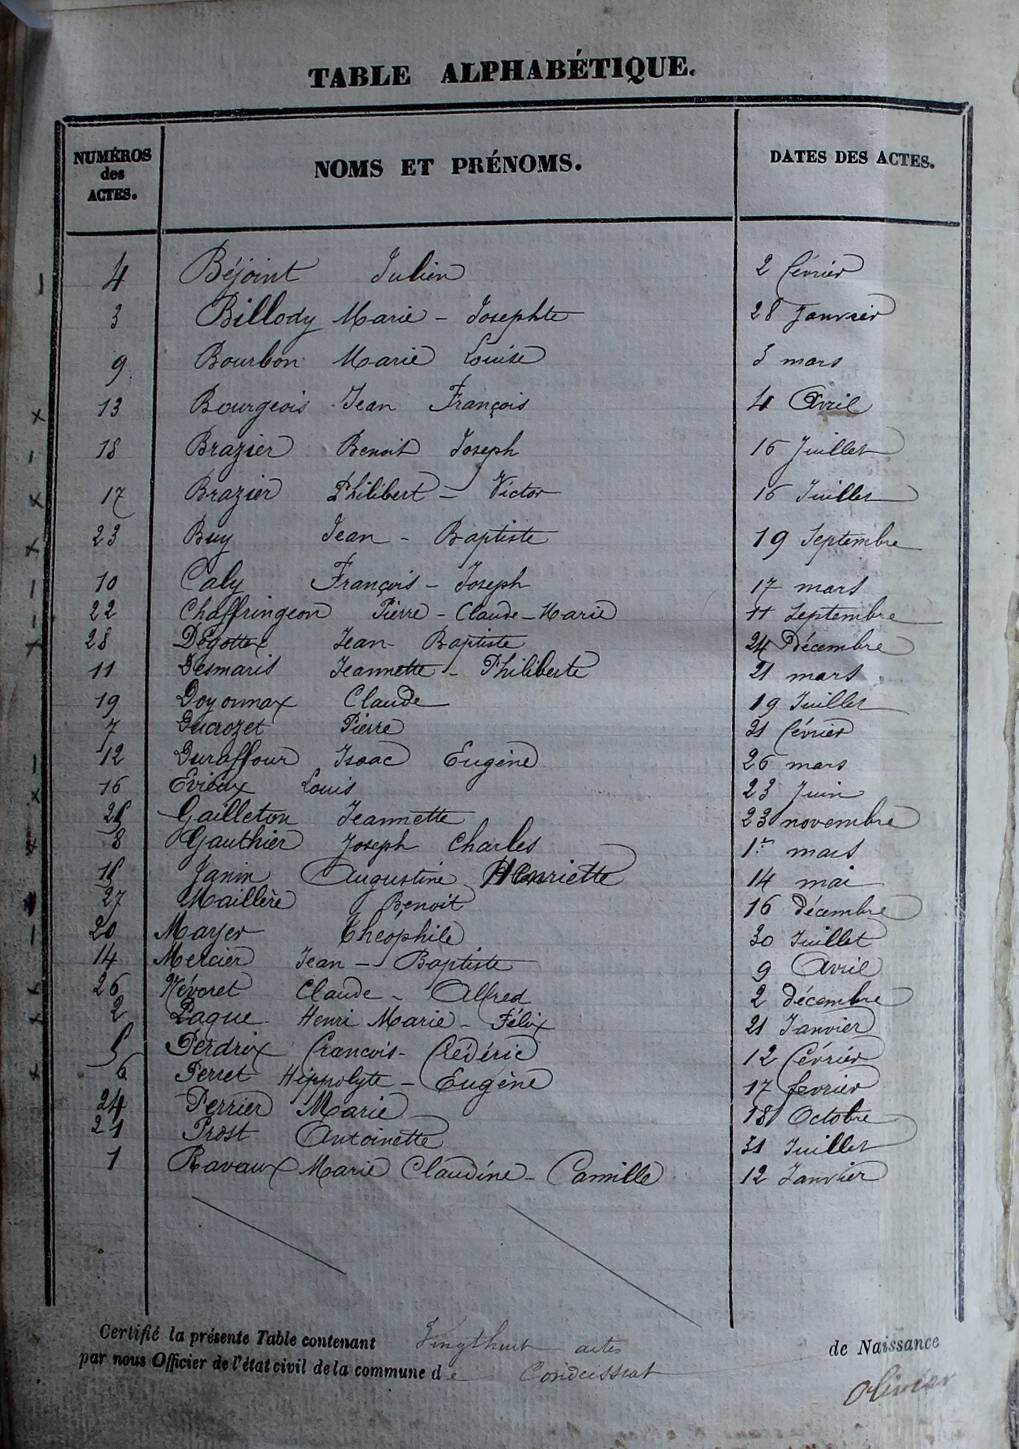 TABLE ALPHABÉTIQUE.
NUMÉROS des ACTES. NOMS ET PRÉNOMS. DATES DES ACTES.
4 Béjoint Julien 2 février
3 Billody Marie - Josephte 28 Janvier
9 Bourbon Marie Louise 3 mars
13 Bourgeois Jean François 4 Avril
18 Brazier Benoit Joseph 16 Juillet
17 Brazier Philibert - Victor 16 Juillet
23 Buy Jean - Baptiste 19 Septembre
10 Caly François - Joseph 17 mars
22 Chaffringeon Pierre - Claude - Marie 11 Septembre
28 Degottex Jean - Baptiste 24 Décembre
11 Desmaris Jeannette - Philiberte 21 mars
19 Doyonnax Claude 19 Juillet
7 Ducrozet Pierre 21 février
12 Duraffour Isaac Eugène 26 mars
16 Evieux Louis 23 Juin
25 Gailleton Jeannette 23 novembre
8 Gauthier Joseph Charles 1er mars
15 Janin Augustine Henriette 14 mai
27 Maillère Benoit 16 décembre
20 Mayer Théophile 30 Juillet
14 Mercier Jean - Baptiste 9 Avril
26 Névoret Claude - Alfred 2 décembre
2 Pague Henri Marie - Félix 21 Janvier
5 Perdrix francois - frédéric 12 février
6 Perret Hippolyte - Eugène 17 fevrier
24 Perrier Marie 18 Octobre
21 Prost Antoinette 31 Juillet
1 Raveaux Marie Claudine - Camille 12 Janvier
Certifié la présente Table contenant Vingthuit actes de Naissance
par nous Officier de l'état civil de la commune de Condeissiat
Olivier